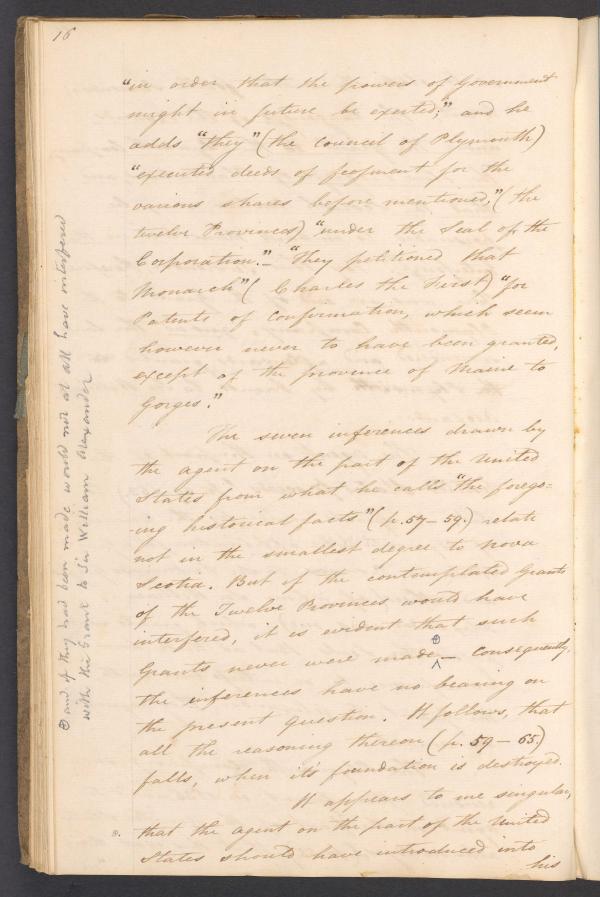 16
"in order that the powers of Government
might in future be exerted;" and he
adds "they" (the council of Plymouth)
"executed deeds of feofment for the
various shares before mentioned," (the
twelve Provinces) "under the Seal of the
Corporation." — "They petitioned that
Monarch" (Charles the First) "for
Patents of Confirmation, which seem
however never to have been granted,
except of the province of Maine to
Gorges."
The seven inferences drawn by
the agent on the part of the United
States from what he calls "the forego=
-ing historical facts" (p. 57–59.) relate
not in the smallest degree to Nova
Scotia. But if the contemplated Grants
of the Twelve Provinces would have
interfered, it is evident that such
Grants never were made ⊕ ^ — Consequently,
the inferences have no bearing on
the present question. It follows, that
all the reasoning thereon (p. 59–65.)
falls, when it's foundation is destroyed.
It appears to me singular,
that the agent on the part of the United
States should have introduced into
his
⊕ and if they had been made would not at all have interfered
with the Grant to Sir William Alexander